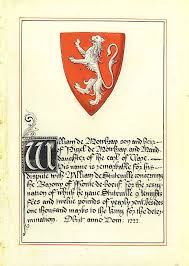 William de Mowbray son and heir
of Nigel de Mowbray and Maud
daughter of the earl of Clare.
His name is remarkable for his
dispute with William de Stuteville concerning
the Barony of Fronte-de-boeuf. For the resig-
nation of which he gave Stuteville 9 knights
fees and twelve pounds of yearly rent besides
one thousand marks to the King for the deter-
mination. Obijt anno Dom: 1222.